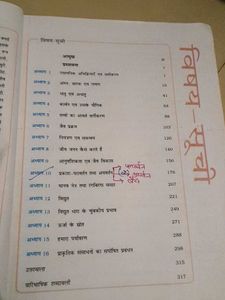 विषय-सूची
आमुख
प्रस्तावना
अध्याय 1 रासायनिक अभिक्रियाएँ एवं समीकरण 1
अध्याय 2 अम्ल, क्षारक एवं लवण
अध्याय 3 धातु एवं अधातु
अध्याय 4 कार्बन एवं उसके यौगिक
अध्याय 5 तत्वों का आवर्त वर्गीकरण
अध्याय 6 जैव प्रक्रम
अध्याय 7 नियंत्रण एवं समन्वय
अध्याय 8 जीव जनन कैसे करते हैं
अध्याय 9 आनुवंशिकता एवं जैव विकास
अध्याय 10 प्रकाश-परावर्तन तथा अपवर्तन 176
अध्याय 11 मानव नेत्र तथा रंगबिरंगा संसार
अध्याय 12 विद्युत
अध्याय 13 विद्युत धारा के चुंबकीय प्रभाव
अध्याय 14 ऊर्जा के स्रोत 271
अध्याय 15 हमारा पर्यावरण 288
अध्याय 16 प्राकृतिक संसाधनों का संपोषित प्रबंधन 298
उत्तरमाला 315
पारिभाषिक शब्दावली 317
विषय-सूची